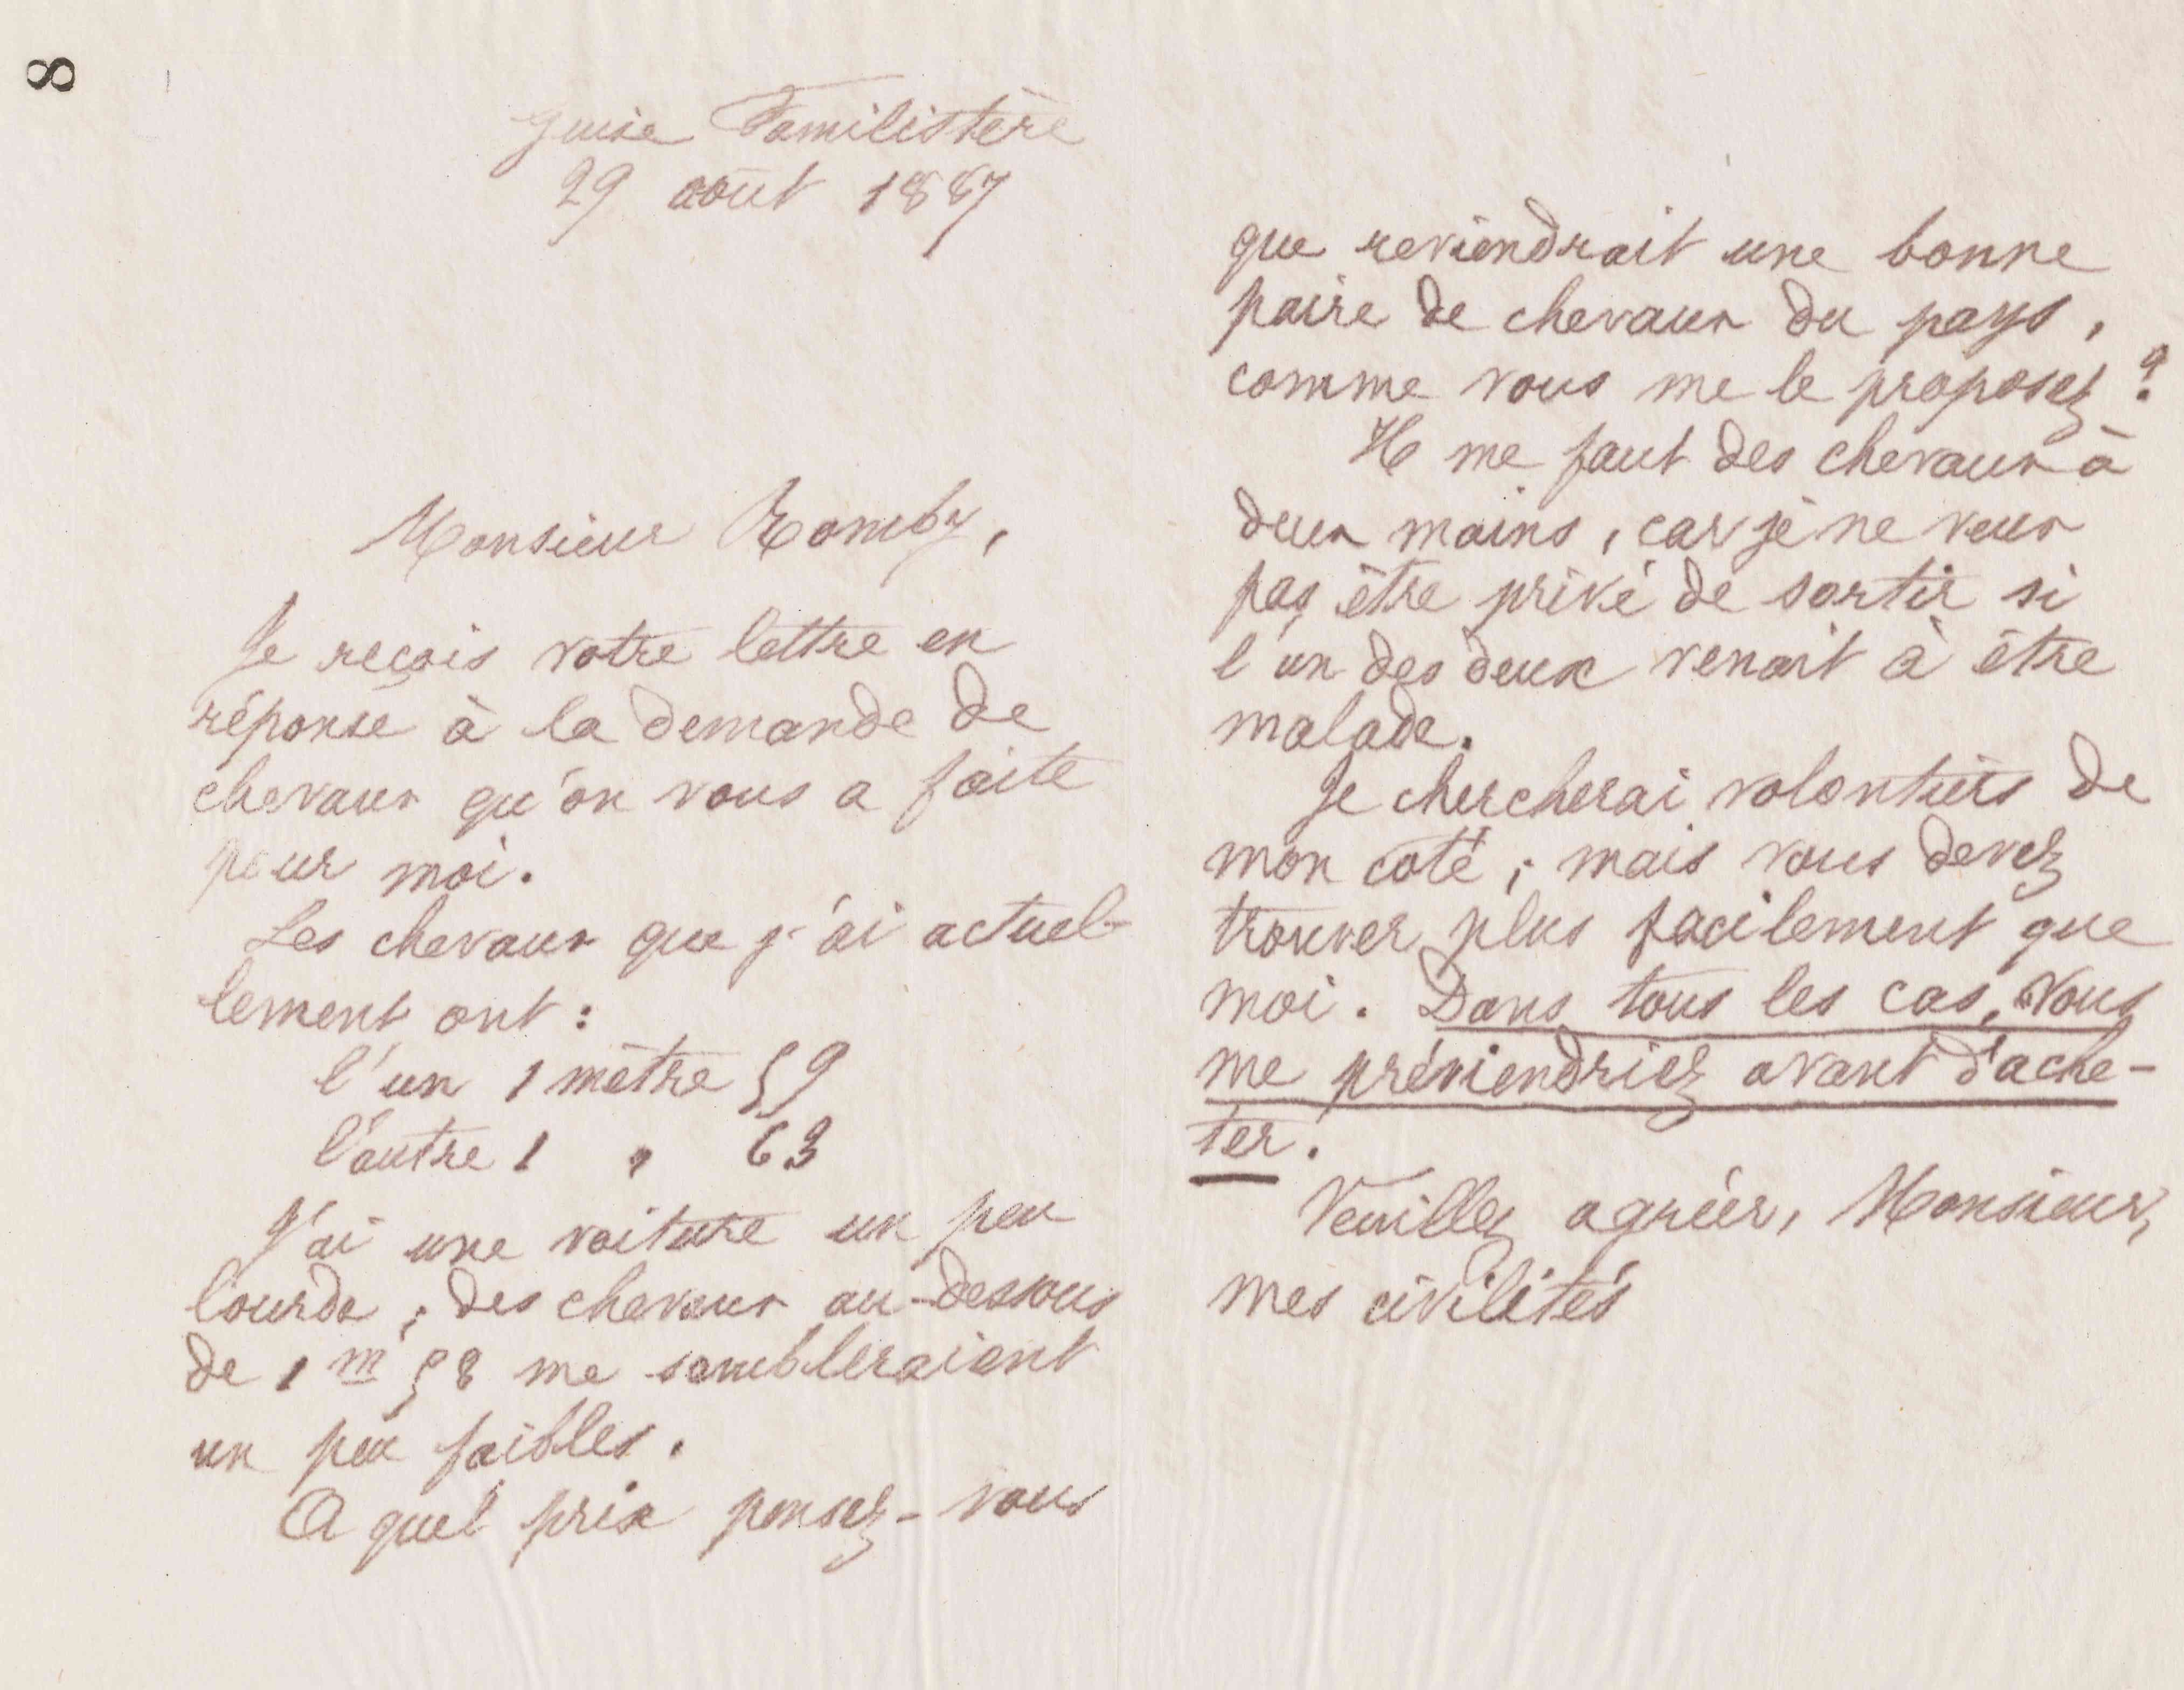 8
Guise Familistère
29 août 1887
Monsieur Romby,
Je reçois votre lettre en
réponse à la demande de
chevaux qu'on vous a faite
pour moi.
Les chevaux que j'ai actuel-
lement ont :
l'un 1 mètre 59
l'autre 1 " 63
J'ai une voiture un peu
lourde ; des chevaux au-dessous
de 1 m 58 me sembleraient
un peu faibles.
A quel prix pensez-vous
que reviendrait une bonne
paire de chevaux du pays,
comme vous me le proposez ?
Il me faut des chevaux à
deux mains, car je ne veux
pas être privé de sortir si
l'un des deux venait à être
malade.
Je chercherai volontiers de
mon côté ; mais vous devez
trouver plus facilement que
moi. Dans tous les cas, vous
me préviendriez avant d'ache-
ter.
Veuillez agréer, Monsieur,
mes civilités